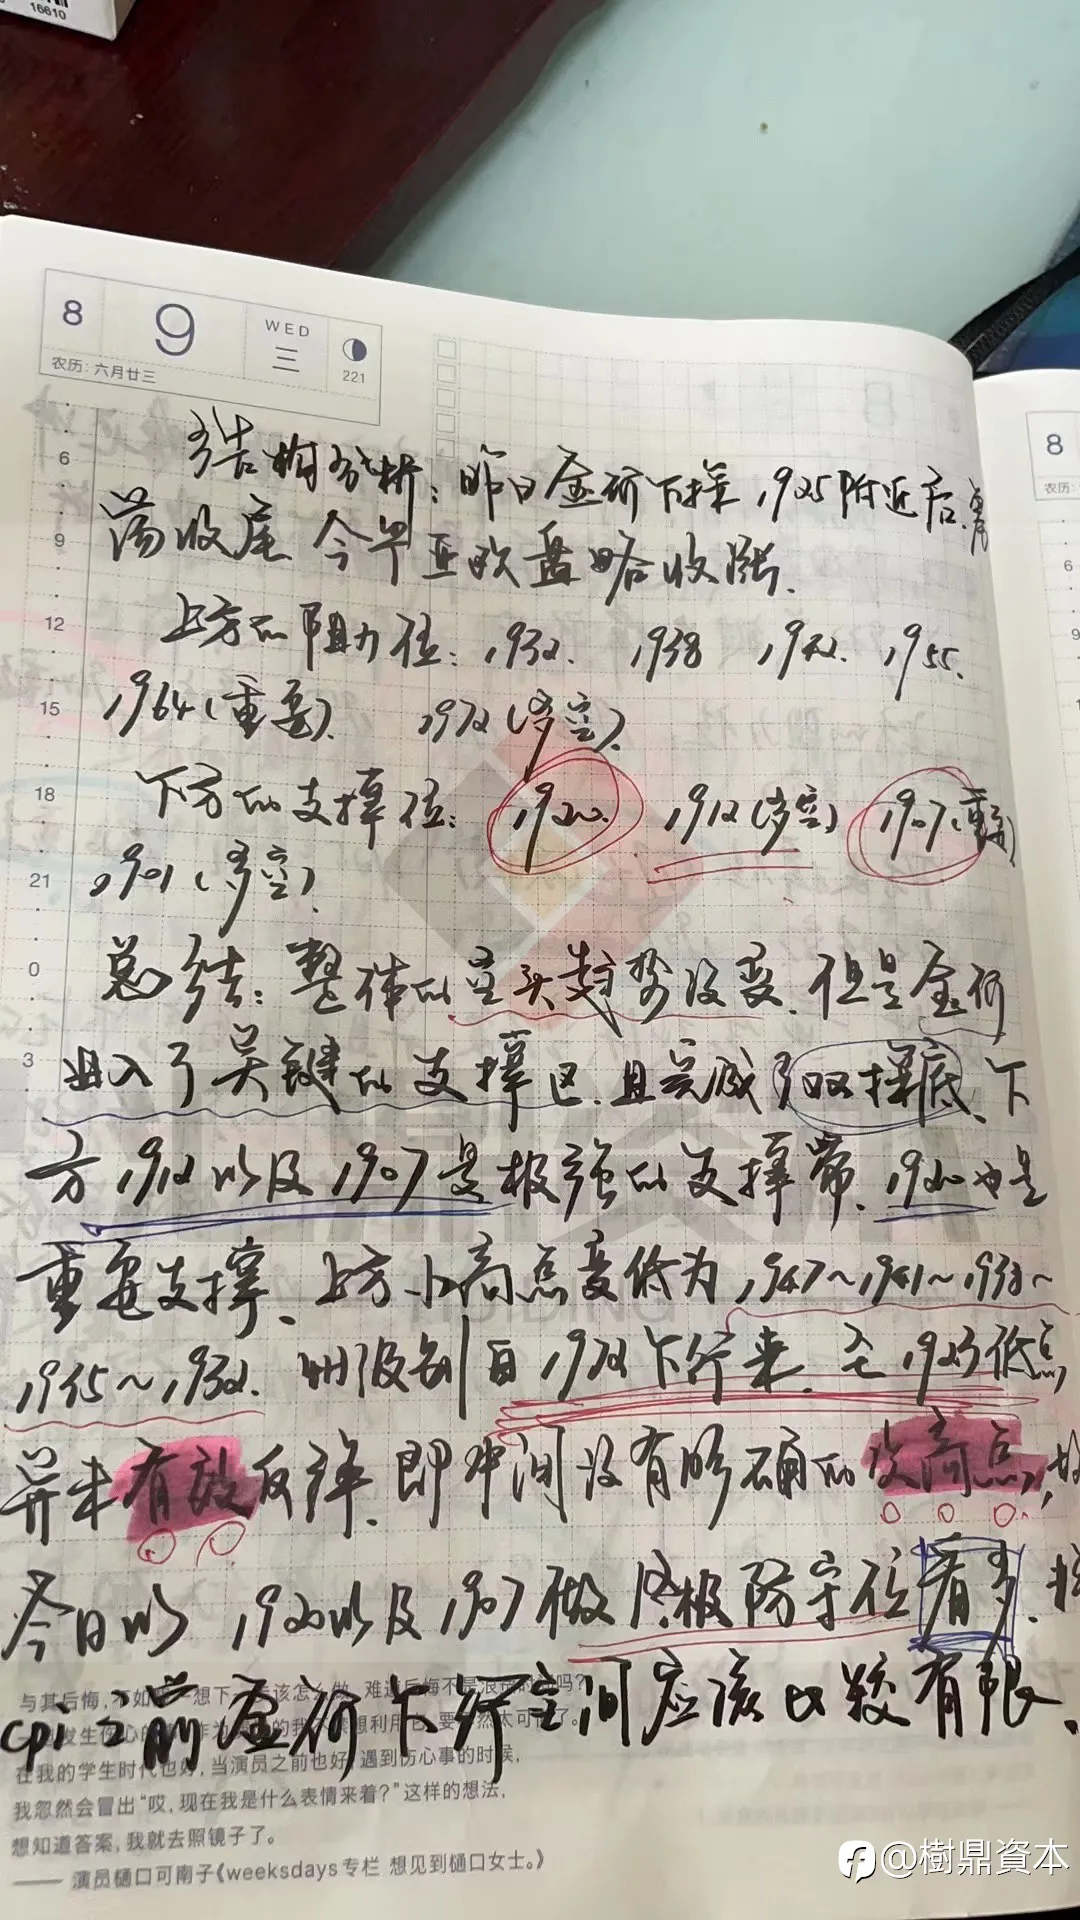 16610
8
9
WED
三
221
农历:六月廿三
8
农历:
结构分析:昨日金价下探1925附近后,震
荡收尾 今早亚欧盘略收涨.
上方的阻力位:1932. 1938 1942. 1955.
1964(重要). 1972(多空).
下方的支撑位: 1920. 1912(多空) 1907(重要)
1901(多空).
总结:整体的空头趋势没变.但是金价
进入了关键的支撑区.且完成了双探底、下
方1912以及1907是极强的支撑带.1920也是
重要支撑、上方小高点变低为1947~1941~1938~
1935~1932. 级别自1972下行来.至1923低点
并未有效反弹.即中间没有明确的次高点,
今日以1920以及1907做终极防守位看多.
cpi之前金价下行空间应该比较有限.
在我的学生时代也好,当演员之前也好,遇到伤心事的时候,
我忽然会冒出“哎,现在我是什么表情来着?”这样的想法,
想知道答案,我就去照镜子了。
—— 演员樋口可南子《weeksdays专栏 想见到樋口女士。》
6
9
12
15
18
21
0
3
6
9
@樹鼎資本